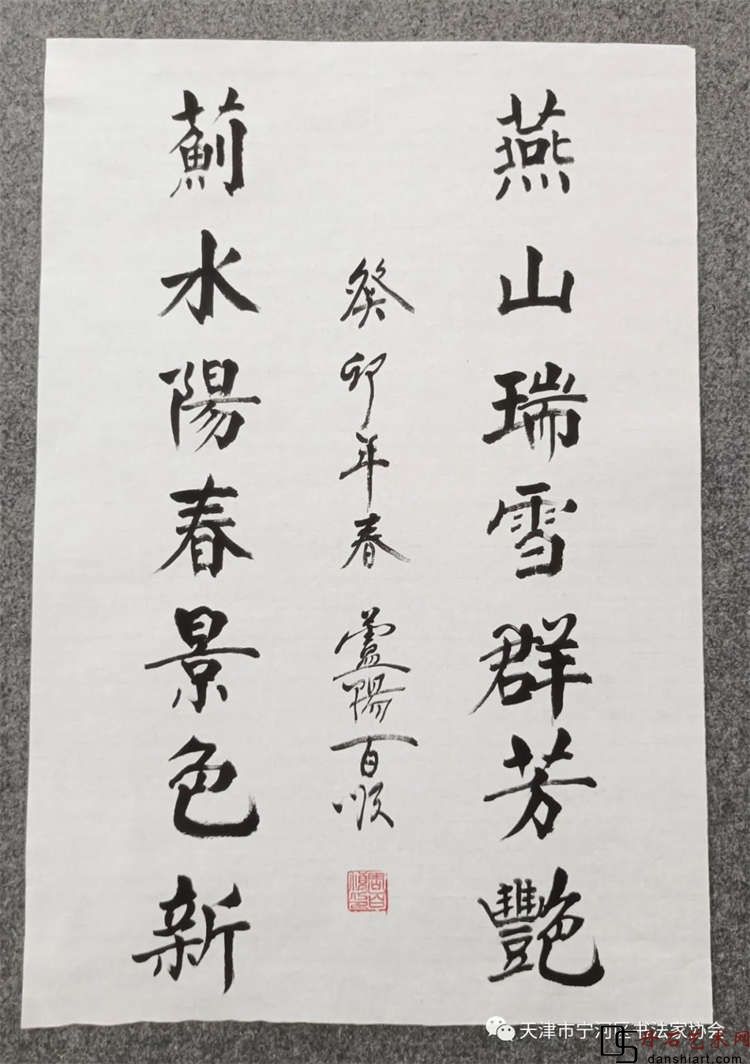 燕山瑞雪群芳豔
薊水陽春景色新
癸卯年春 蘆陽百順
天津市宁河区书法家协会
丹石艺术网
danshiart.com